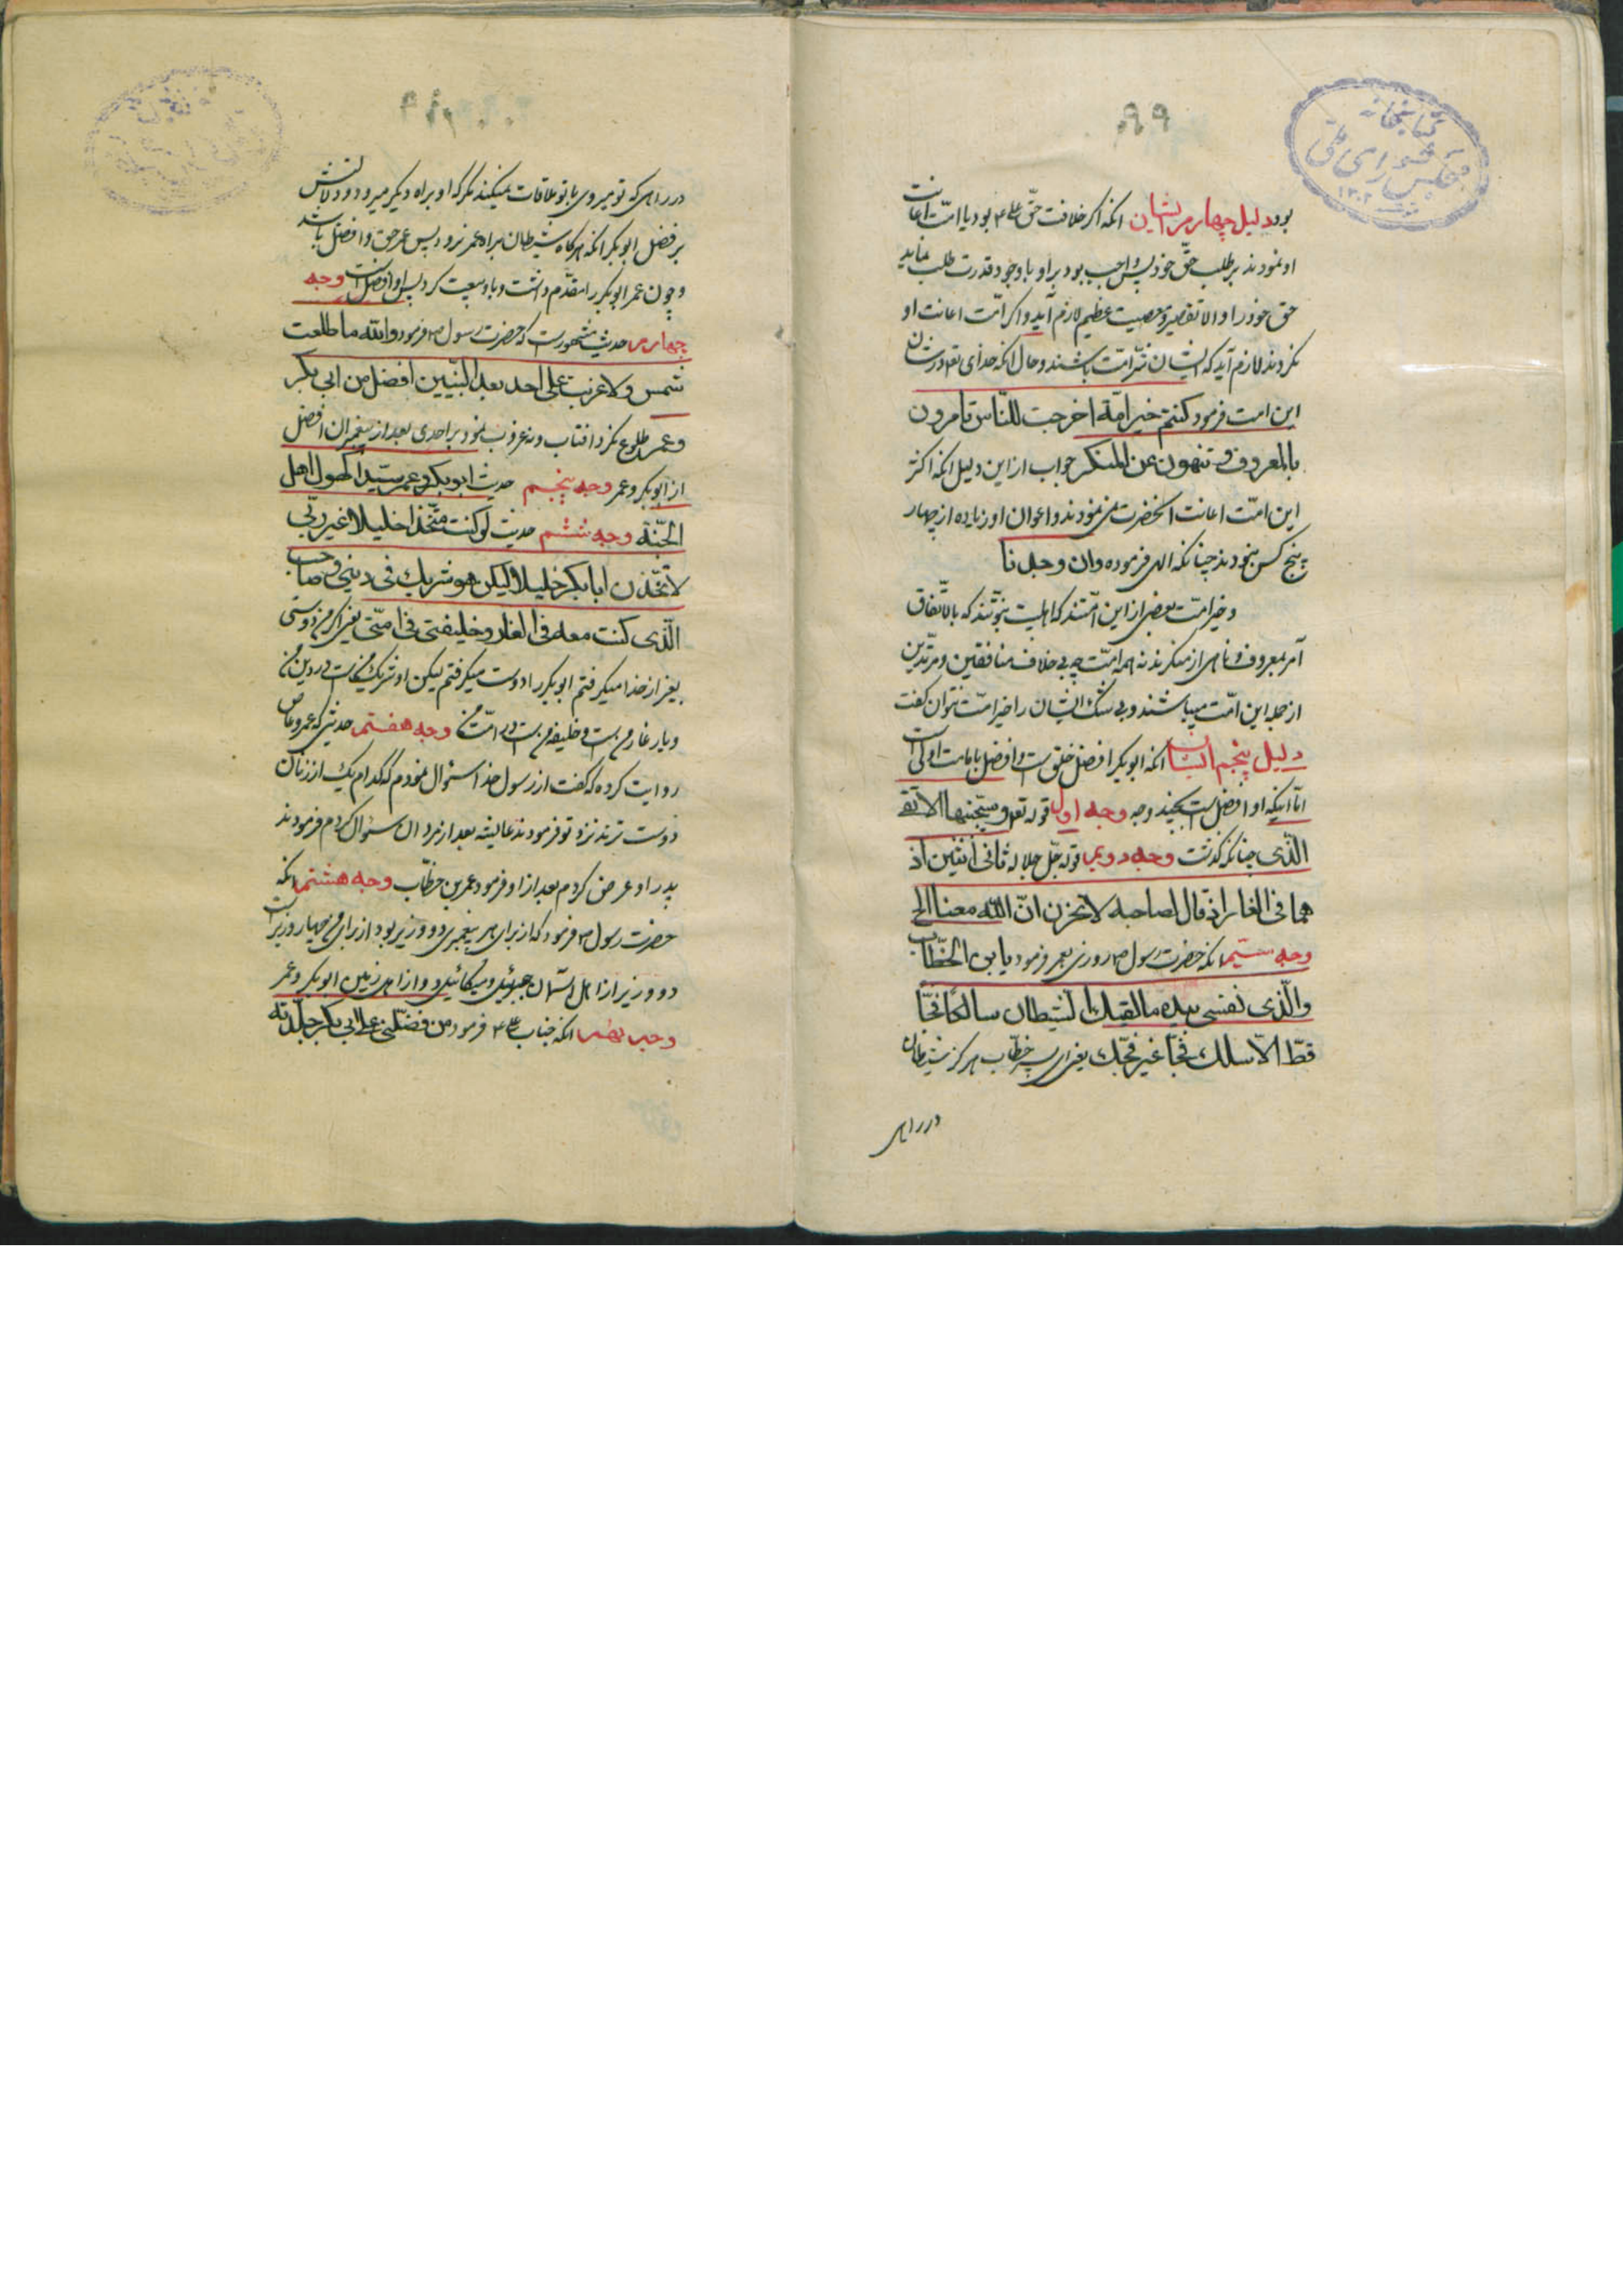 ۹۹
کتابخانه
مجلس شورای ملی
۱۳۰۲
بود دلیل چهارم ایشان انکه اکر خلافت حق علی ع بود یا امت اعانت
او نمودند بر طلب حق خود پس واجب بود بر او با وجود قدرت طلب نماید
حق خود را و الا تقصیر و معصیت عظیم لازم آید و اکر امت اعانت او
نکردند لازم آید که ایشان شر امت باشند و حال انکه خدای تع در شان
این امت فرمود کنتم خیر امة اخرجت للناس تامرون
بالمعروف و تنهون عن المنکر جواب از این دلیل انکه اکثر
این امت اعانت انحضرت نمی نمودند و اعوان او زیاده از چهار
پنج کس نبودند چنانکه الهی فرموده وان وجدنا
و خیر امت بعضی از این امتند که اهلبیت نبوتند که بالاتفاق
آمر بمعروف و ناهی از منکرند نه همه امت چه بی خلاف منافقین و مرتدین
از جمله این امت میباشند و بی شک ایشان را خیر امت نتوان کفت
دلیل پنجم ایشان انکه ابوبکر افضل خلق است و افضل بامامت اولی است
اما اینکه او افضل است بچند وجه وجه اول قوله تع و سیجنبها الاتقی
الذی چنانکه کذشت وجه دویم قوله جل جلاله ثانی اثنین اذ
هما فی الغار اذ قال لصاحبه لا تحزن ان الله معنا الخ
وجه سیم انکه حضرت رسول ص روزی بعمر فرمود یابن الخطاب
والذی نفسی بیده ما لقیک الشیطان سالکا فجا
قط الا سلک فجا غیر فجک یعنی ای پسر خطاب هرکز شیطان
در راهی
در راهی که تو میروی با تو ملاقات نمیکند مکر که او براه دیکر میرود و دلالتش
بر فضل ابوبکر انکه هرکاه شیطان براه عمر نرود پس عمر حق و افضل باشد
و چون عمر ابوبکر را مقدم داشت و باو بیعت کرد پس او افضل است وجه
چهارم حدیث مشهور است که حضرت رسول ص فرمود والله ما طلعت
شمس ولا غربت علی احد بعد النبیین افضل من ابی بکر
وعمر طلوع نکرد افتاب و نه غروب نمود بر احدی بعد از پیغمبران افضل
از ابوبکر و عمر وجه پنجم حدیث ابوبکر وعمر سیدا کهول اهل
الجنة وجه ششم حدیث لو کنت متخذا خلیلا غیر ربی
لاتخذن ابابکر خلیلا ولیکن هو شریک فی دینی وصاحب
الذی کنت معه فی الغار و خلیفتی فی امتی یعنی اکر من دوستی
بغیر از خدا میکرفتم ابوبکر را دوست میکرفتم لیکن او شریک منست در دین من
و یار غار من است و خلیفه من است در امت من وجه هفتم حدیثی که عمرو عاص
روایت کرده که کفت از رسول خدا سؤال نمودم که کدام یک از زنان
دوست ترند نزد تو فرمودند عایشه بعد از مردان سؤال کردم فرمودند
پدر او عرض کردم بعد از او فرمود عمر بن خطاب وجه هشتم انکه
حضرت رسول ص فرمود که از برای هر پیغمبری دو وزیر بود از برای من چهار وزیر است
دو وزیر از اهل اسمان جبرئیل و میکائیل و دو از اهل زمین ابوبکر و عمر
وجه نهم انکه جناب علی ع فرمود من فضلنی علی ابی بکر جلدته